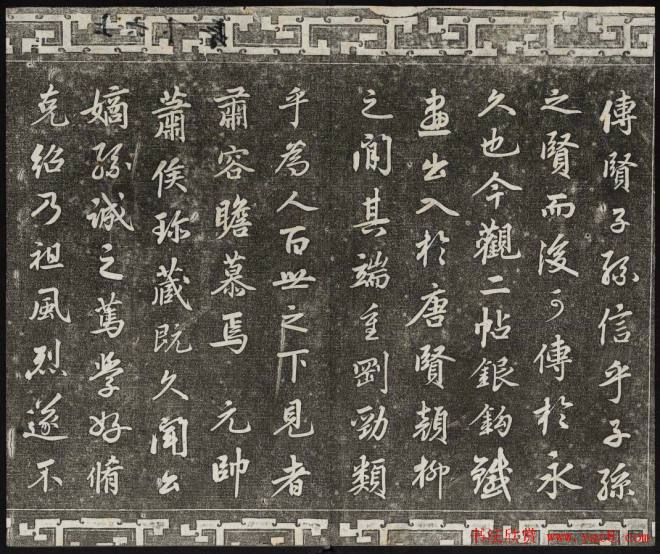 傳賢子孫信乎子孫
之賢而後可傳於永
久也今觀二帖銀鈎鐵
畫出入於唐賢顏柳
之間其端重剛勁類
乎為人百世之下見者
肅容瞻慕焉 元帥
蕭侯珎藏既久聞公
嫡孫誠之篤學好脩
克紹乃祖風烈遂不
书法欣赏